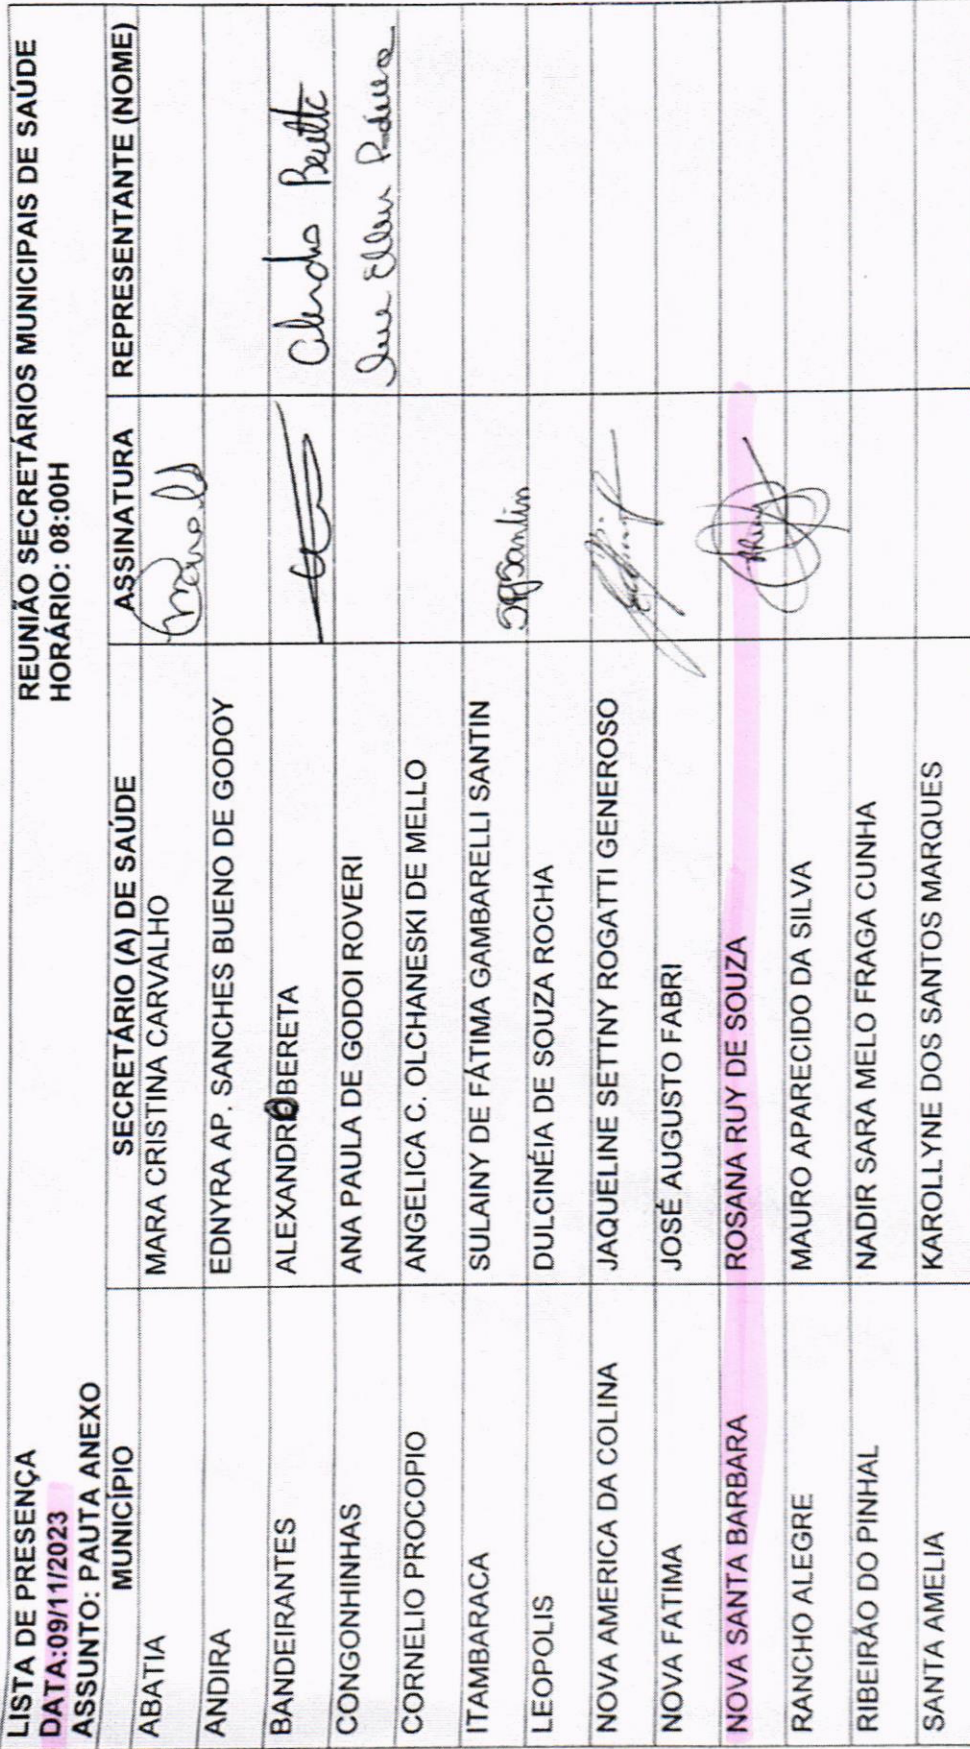 LISTA DE PRESENÇA
DATA:09/11/2023
ASSUNTO: PAUTA ANEXO
REUNIÃO SECRETÁRIOS MUNICIPAIS DE SAÚDE
HORÁRIO: 08:00H
MUNICÍPIO SECRETÁRIO (A) DE SAÚDE ASSINATURA REPRESENTANTE (NOME)
ABATIA MARA CRISTINA CARVALHO
ANDIRA EDNYRA AP. SANCHES BUENO DE GODOY
BANDEIRANTES ALEXANDRO BERETA
CONGONHINHAS ANA PAULA DE GODOI ROVERI
CORNELIO PROCOPIO ANGELICA C. OLCHANESKI DE MELLO
ITAMBARACA SULAINY DE FÁTIMA GAMBARELLI SANTIN
LEOPOLIS DULCINÉIA DE SOUZA ROCHA
NOVA AMERICA DA COLINA JAQUELINE SETTNY ROGATTI GENEROSO
NOVA FATIMA JOSÉ AUGUSTO FABRI
NOVA SANTA BARBARA ROSANA RUY DE SOUZA
RANCHO ALEGRE MAURO APARECIDO DA SILVA
RIBEIRÃO DO PINHAL NADIR SARA MELO FRAGA CUNHA
SANTA AMELIA KAROLLYNE DOS SANTOS MARQUES